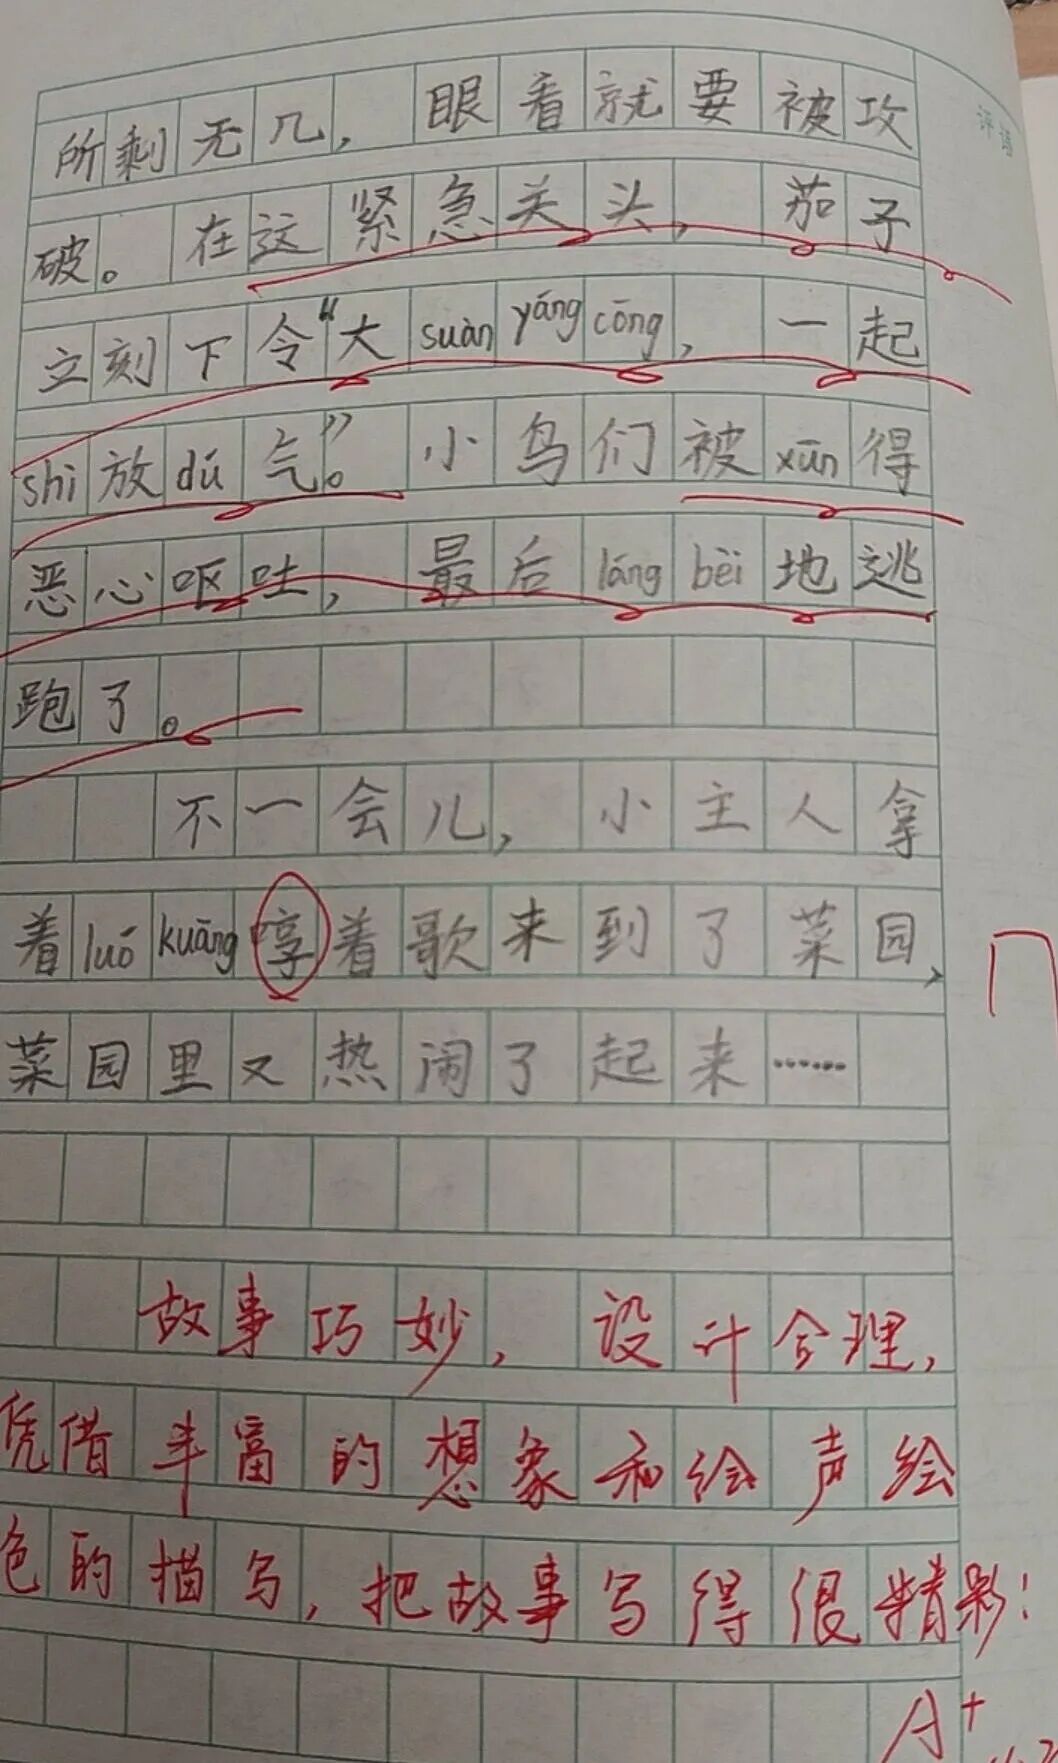 评语
所剩无几，眼看就要被攻
破。在这紧急关头，茄子
立刻下令“大suàn yáng cōng，一起
shi放dú气。”小鸟们被xūn得
恶心呕吐，最后láng bèi地逃
跑了。
不一会儿，小主人拿
着luó kuāng哼着歌来到了菜园，
菜园里又热闹了起来……
故事巧妙，设计合理，
凭借丰富的想象和绘声绘
色的描写，把故事写得很精彩！
A+